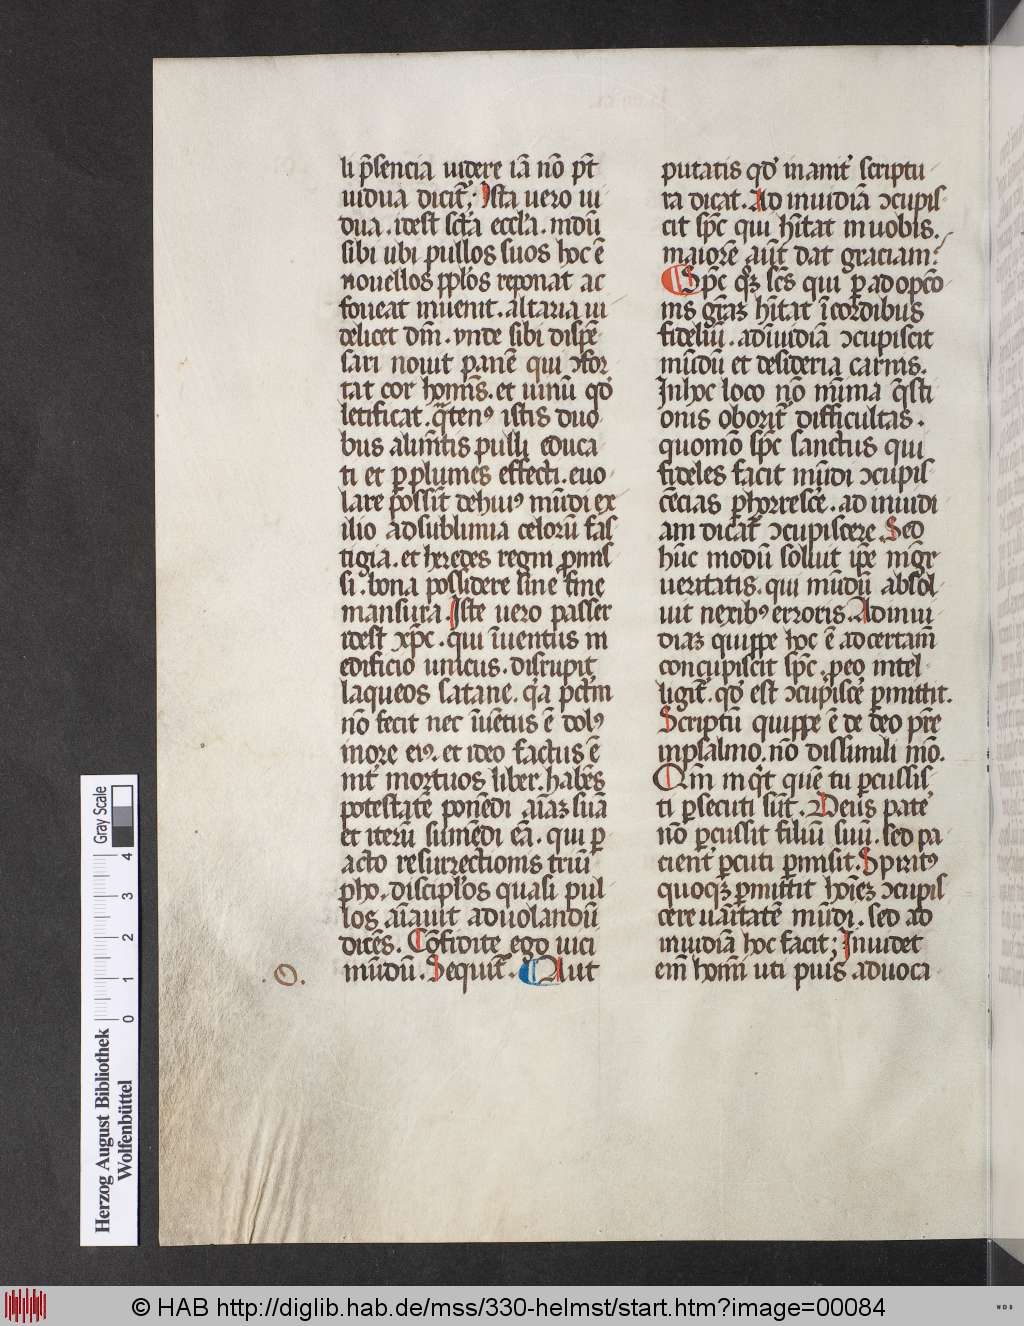 li p̄sencia uidere iā nō pt̄
uidua dicit̄; Ista uero ui
dua . idest sct̄a eccl̄a . nidū
sibi ubi pullos suos hoc ē
nouellos ppl̄os reponat ac
foueat inuenit . altaria ui
delicet dn̄i . vnde sibi dispē
sari nouit panē qui ↄfor
tat cor homīs . et uinū qd̄
letificat . q̄tenꝰ istis duo
bus alimt̄is pulli educa
ti et p plumes effecti . euo
lare possīt dehuiꝰ mūdi ex
ilio adsublimia celorū fas
tigia . et heredes regni p̄mis
si . bona possidere sine fine
mansura . Iste uero passer
idest xp̄c . qui īuentus in
edificio unicus . disrupit
laqueos satane . q̄a pctm̄
nō fecit nec īuētus ē dolꝰ
īnore eiꝰ . et ideo factus ē
int̄ mortuos liber . habēs
potestatē ponēdi aīaꝫ suā
et iterū sumēdi eā . qui p
acto resurrectionis triū
pho . discipl̄os quasi pul
los aīauit aduolandū
dicēs . Cōfidite ego uici
mūdum . Sequit̄ . Aut
putatis qd̄ inanit̄ scriptu
ra dicat . Ad inuidiā ↄcupis
cit sp̄c qui hītat inuobis .
maiorē aūt dat graciam?
Sp̄c qͥꝫ sc̄s qui p adopcō
nis gr̄aꝫ hītat īcordibus
fideliū . adīuidiā ↄcupiscit
mūdū et desideria carnis .
Inhoc loco nō minīma q̄sti
onis oborit̄ difficultas .
quomō sp̄c sanctus qui
fideles facit mūdi ↄcupis
cēcias phorrescē . ad inuidi
am dicat̄ ↄcupiscere . Sed
hūc modū soluit ip̄e mgr̄
ueritatis . qui mūdū absol
uit nexibꝰ erroris . Adinui
diaꝫ quippe hoc ē adcertam̄
concupiscit sp̄c . peo intel
ligit̄ . qd̄ est ↄcupiscē pmittit .
Scriptū quippe ē de deo pr̄e
inpsalmo . nō dissimili mō .
Qm̄ inqͥt quē tu pcussis
ti psecuti sūt . Deus pate
nō pcussit filiū suū . sed pa
cient̄ pcuti pmisit . Spiritꝰ
quoqꝫ pmittit hoīeꝫ ↄcupis
cere uanitatē mūdi . sed ad
inuidiā hoc facit; Inuidet
em̄ homī uti puis aduoca
. O .
Gray Scale
0 1 2 3 4
Herzog August Bibliothek
Wolfenbüttel
© HAB http://diglib.hab.de/mss/330-helmst/start.htm?image=00084